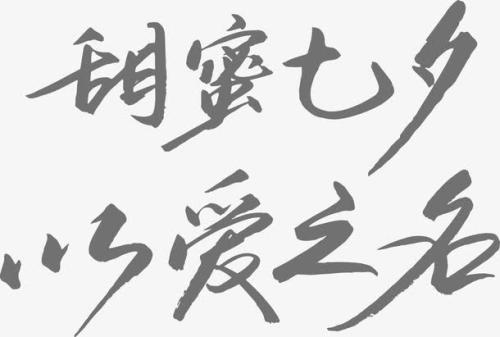 甜蜜七夕
以爱之名